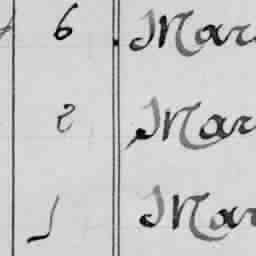 6 Mar
2 Mar
1 Mar